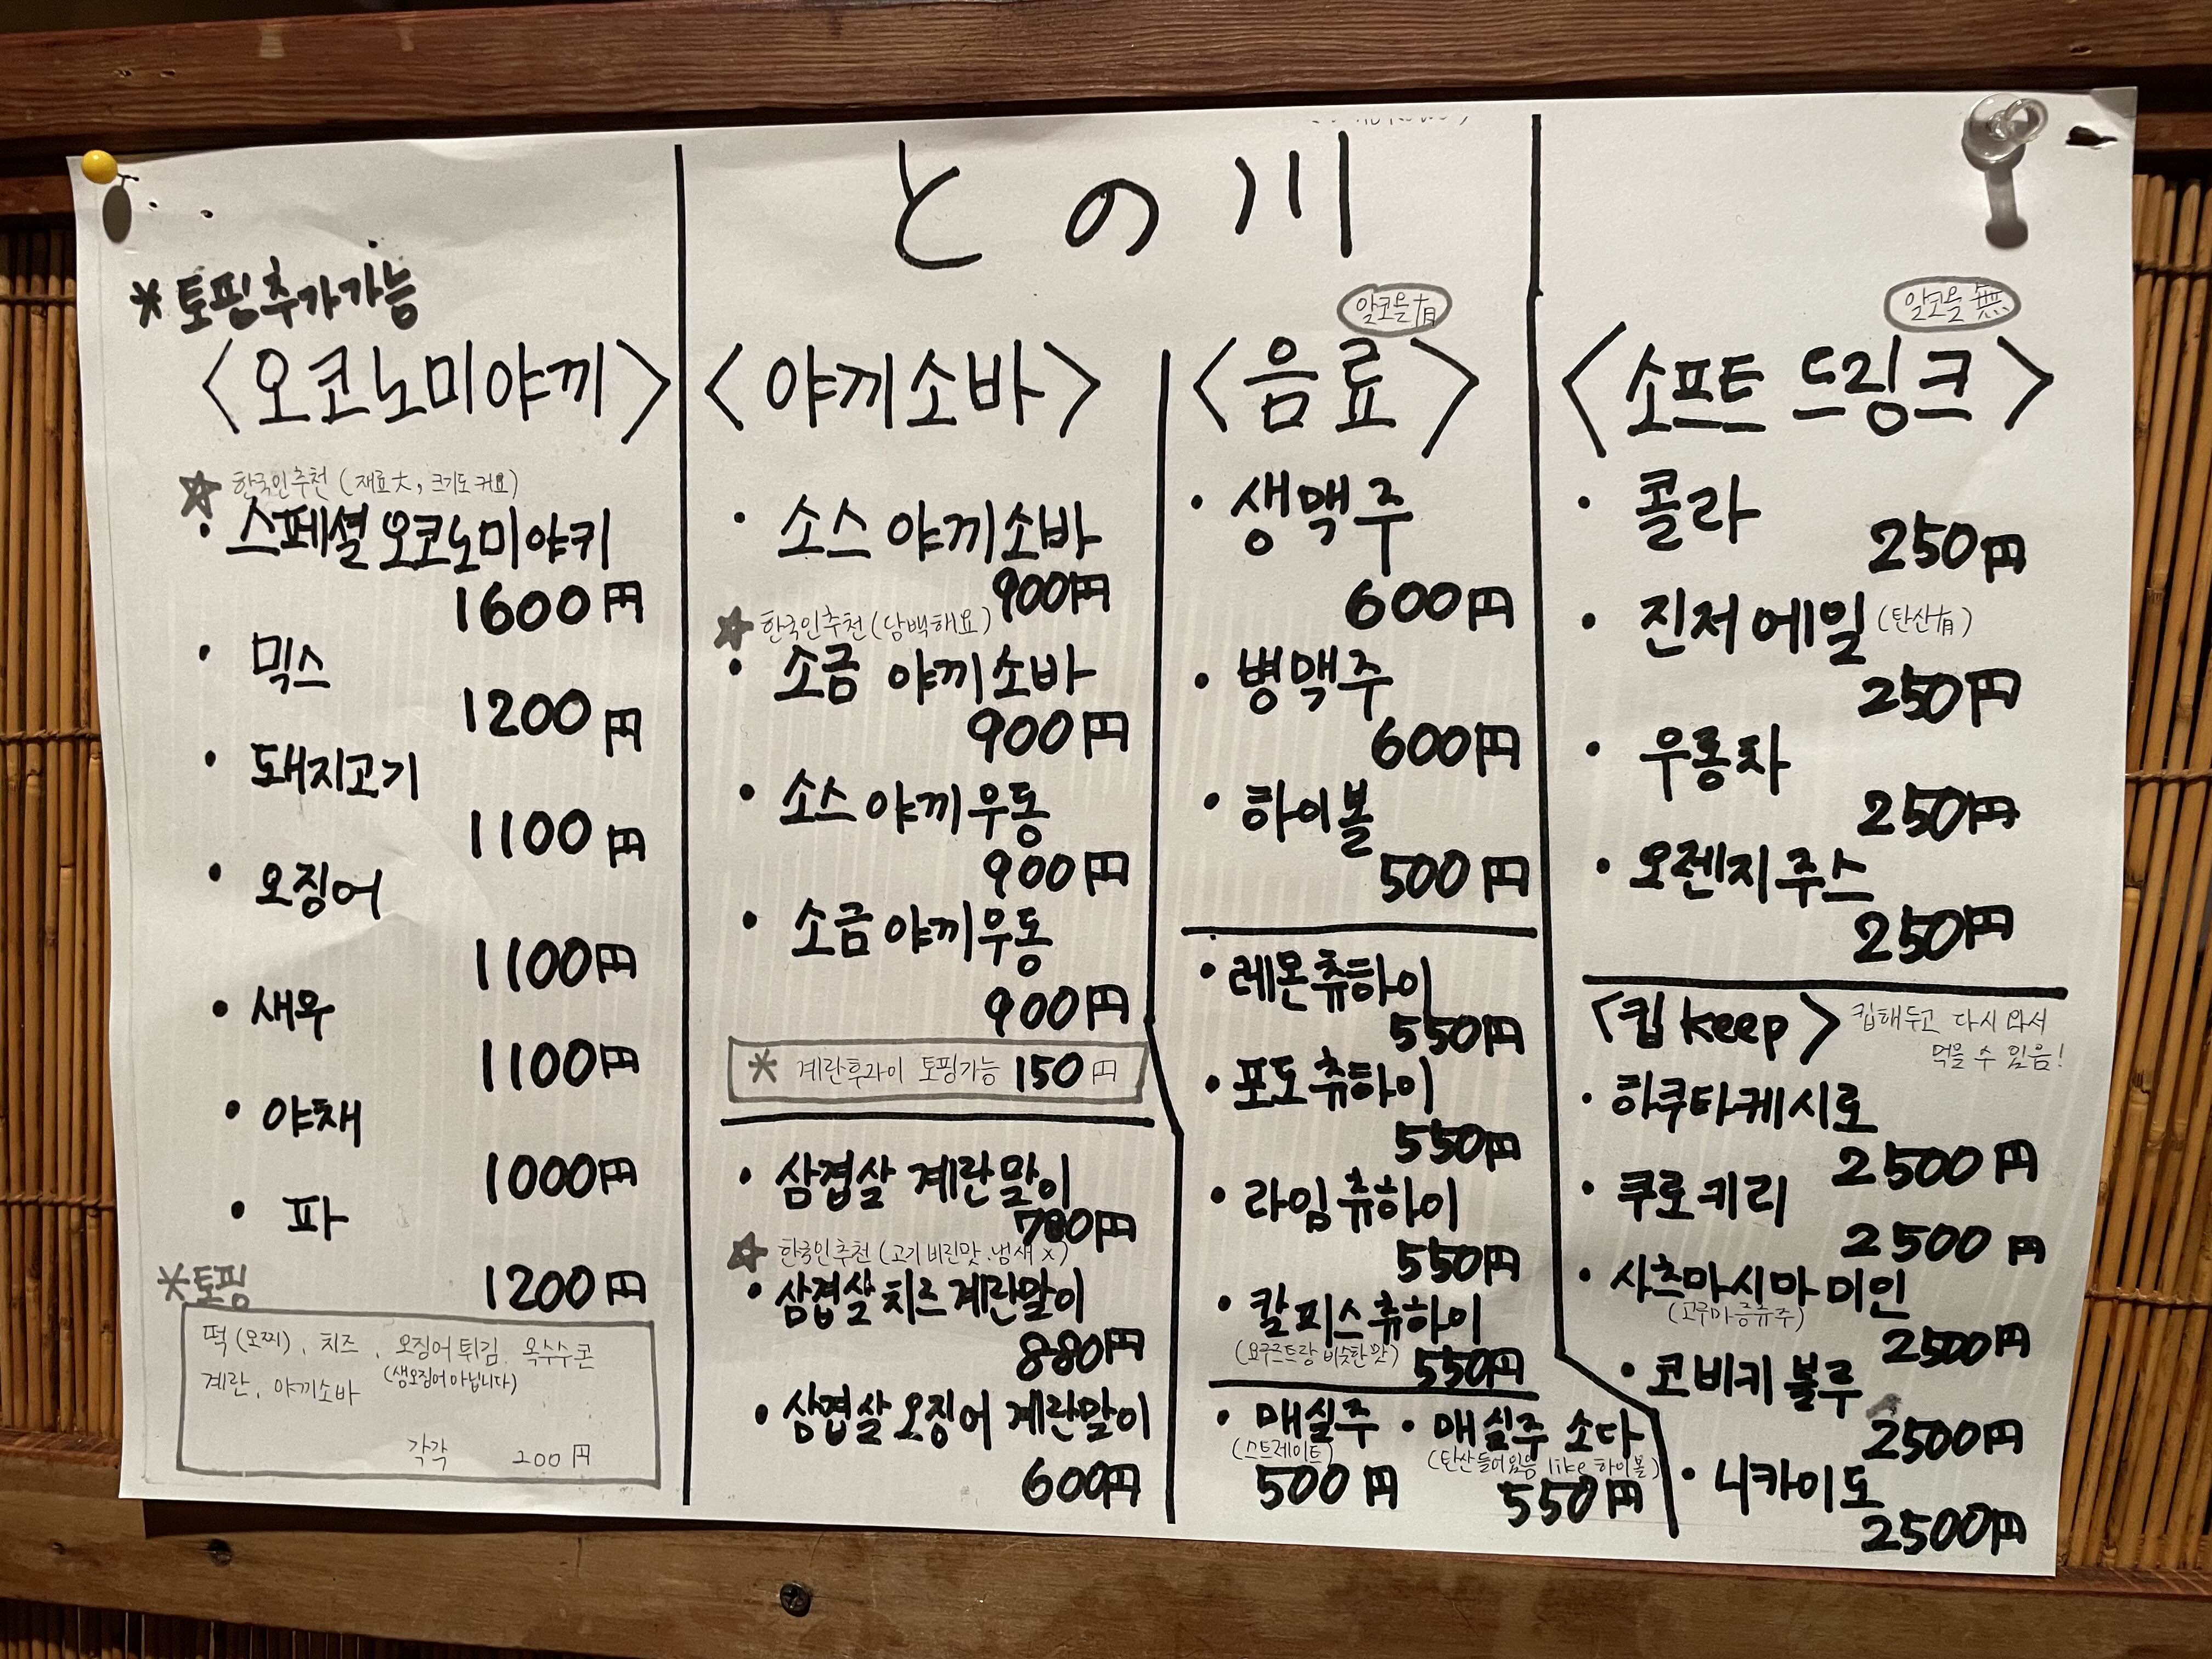 との川
*토핑추가가능
<오코노미야끼>
☆ 한국인추천 (재료大, 크기도 커요)
· 스페셜 오코노미야키
1600円
· 믹스
1200円
· 돼지고기
1100円
· 오징어
1100円
· 새우
1100円
· 야채
1000円
· 파
1200円
*토핑
떡(모찌), 치즈, 오징어 튀김, 옥수수콘
(생오징어 아닙니다)
계란, 야끼소바
각각 200円
<야끼소바>
· 소스 야끼소바
900円
☆ 한국인추천 (담백해요)
· 소금 야끼소바
900円
· 소스 야끼우동
900円
· 소금 야끼우동
900円
* 계란후라이 토핑가능 150円
· 삼겹살 계란말이
780円
☆ 한국인추천 (고기 비린맛.냄새 x)
· 삼겹살 치즈 계란말이
880円
· 삼겹살 오징어 계란말이
600円
알코올 有
<음료>
· 생맥주
600円
· 병맥주
600円
· 하이볼
500円
· 레몬츄하이
550円
· 포도츄하이
550円
· 라임츄하이
550円
· 칼피스츄하이
(요구르트랑 비슷한 맛) 550円
· 매실주 · 매실주 소다
(스트레이트) (탄산들어있음 like 하이볼)
500円 550円
알코올 無
<소프트 드링크>
· 콜라
250円
· 진저에일 (탄산有)
250円
· 우롱차
250円
· 오렌지 주스
250円
<킵 keep> 킵해두고 다시 와서
먹을 수 있음!
· 하쿠타케시로
2500円
· 쿠로키리
2500円
· 사츠마시마 미인
(고구마증류주)
2500円
· 코비키 블루
2500円
· 니카이도
2500円